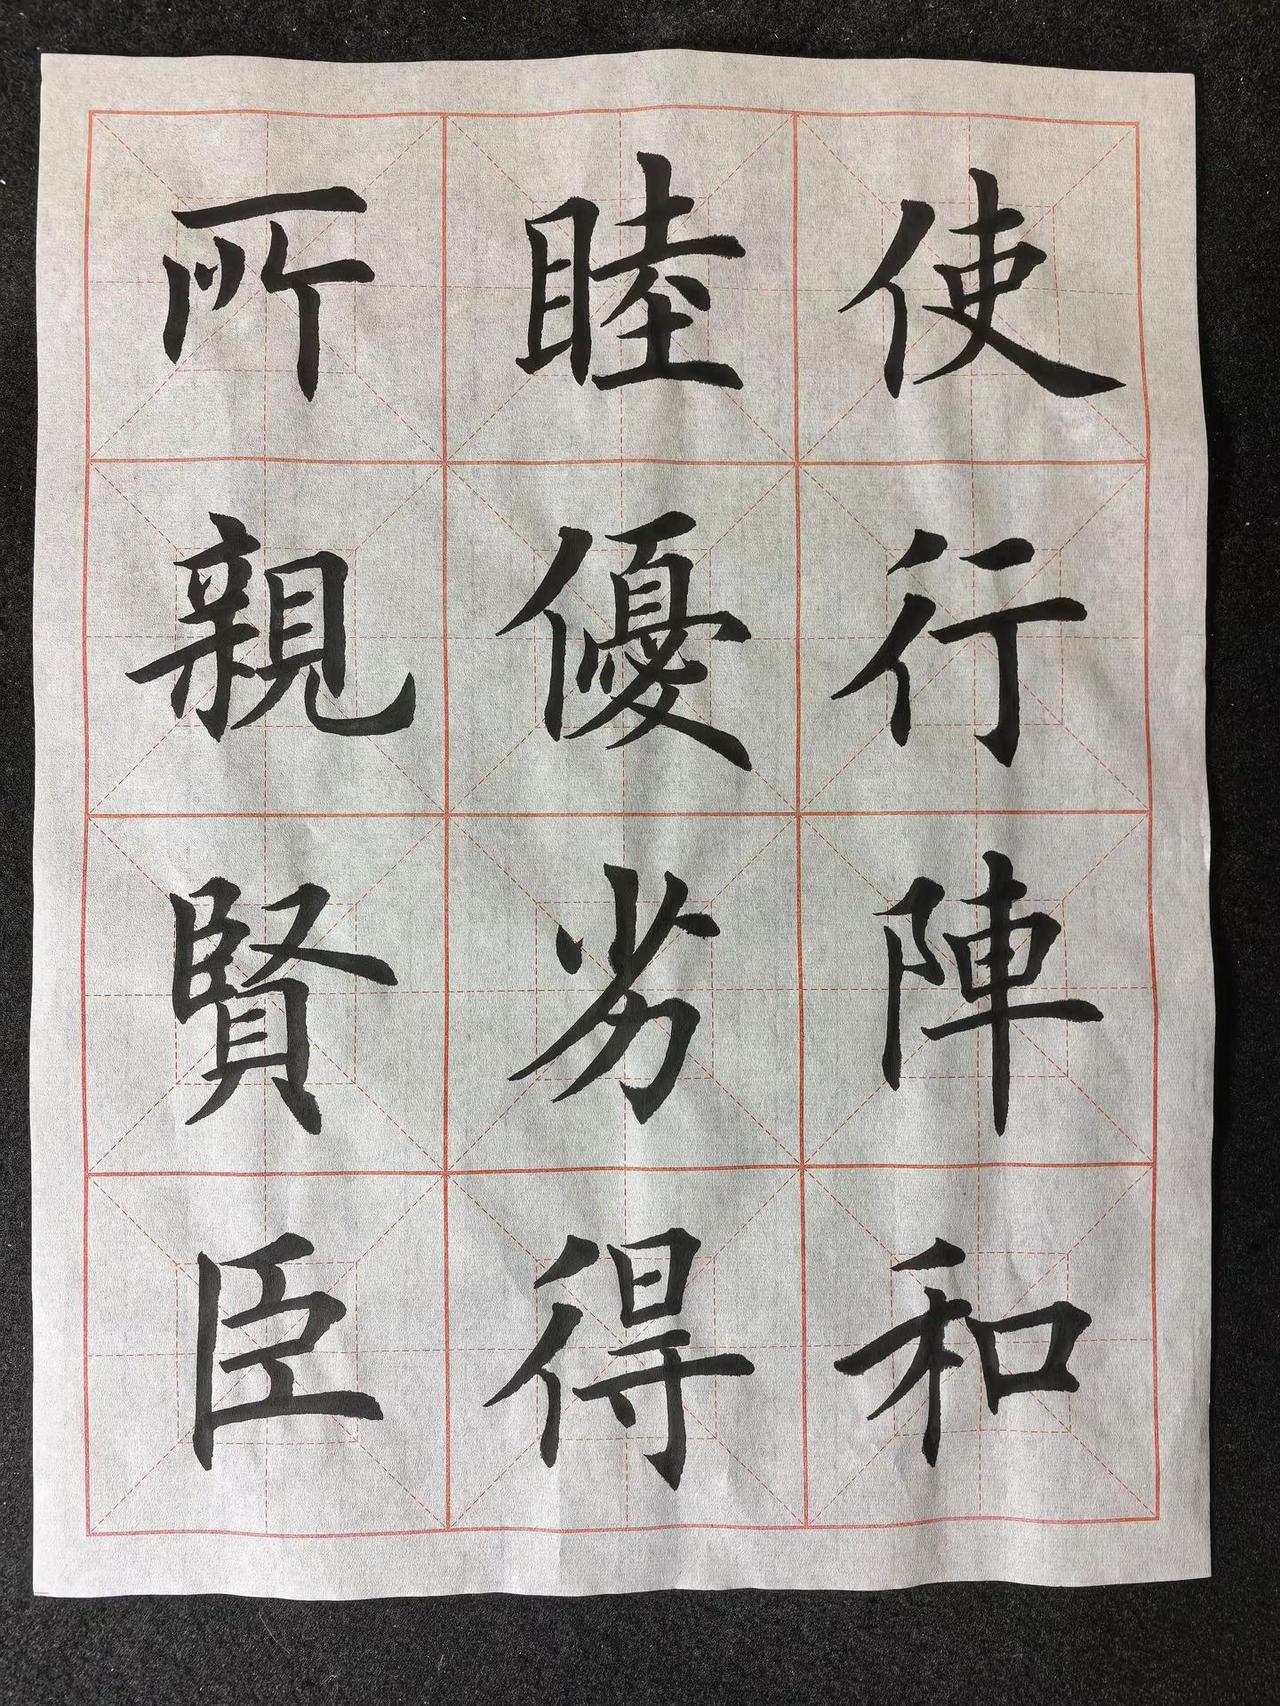 使行陣和
睦優劣得
所親賢臣